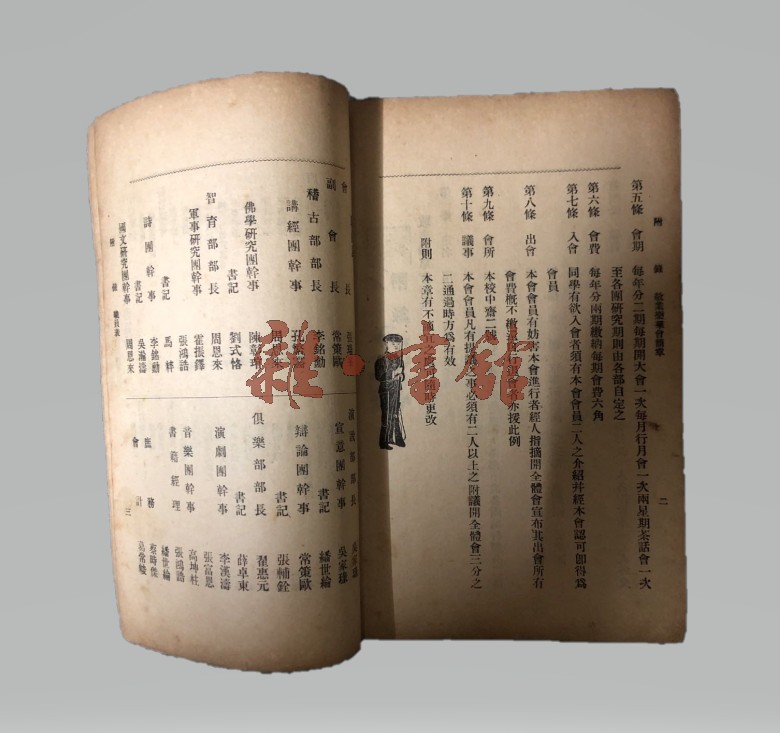 附錄 敬業樂羣會簡章
二
第五條 會期 每年分二期每期開大會一次每月行月會一次兩星期茶話會一次
至各團研究期則由各部自定之
第六條 會費 每年分兩期繳納每期會費六角
第七條 入會 同學有欲入會者須有本會會員二人之介紹幷經本會認可卽得爲
會員
第八條 出會 本會會員有妨害本會進行者經人指摘開全體會宣布其出會所有
會費概不繳還 會者亦援此例
第九條 會所 本校中齋二號
第十條 議事 本會會員凡有提議之事必須有二人以上之附議開全體會三分之
二通過時方爲有效
附則 本章有不 更改
會 長
副會長 常策歐
稽古部部長 李銘勳
講經團幹事
佛學研究團幹事
書記 劉式恪
智育部部長 周恩來
軍事研究團幹事 霍振鐸
張鴻誥
書記 馬 梓
詩團幹事 李銘勳
書記 吳瀚濤
國文研究團幹事 周恩來
部部長
宣意團幹事 吳家瑑
書記 潘世綸
辯論團幹事 常策歐
書記 張輔銓
俱樂部部長 翟惠元
書記 薛卓東
演劇團幹事 李漢濤
張富恩
音樂團幹事 高坤柱
書籍經理 張鴻誥
潘世綸
庶務 蔡時傑
會計
附錄 職員表
三
雅·書